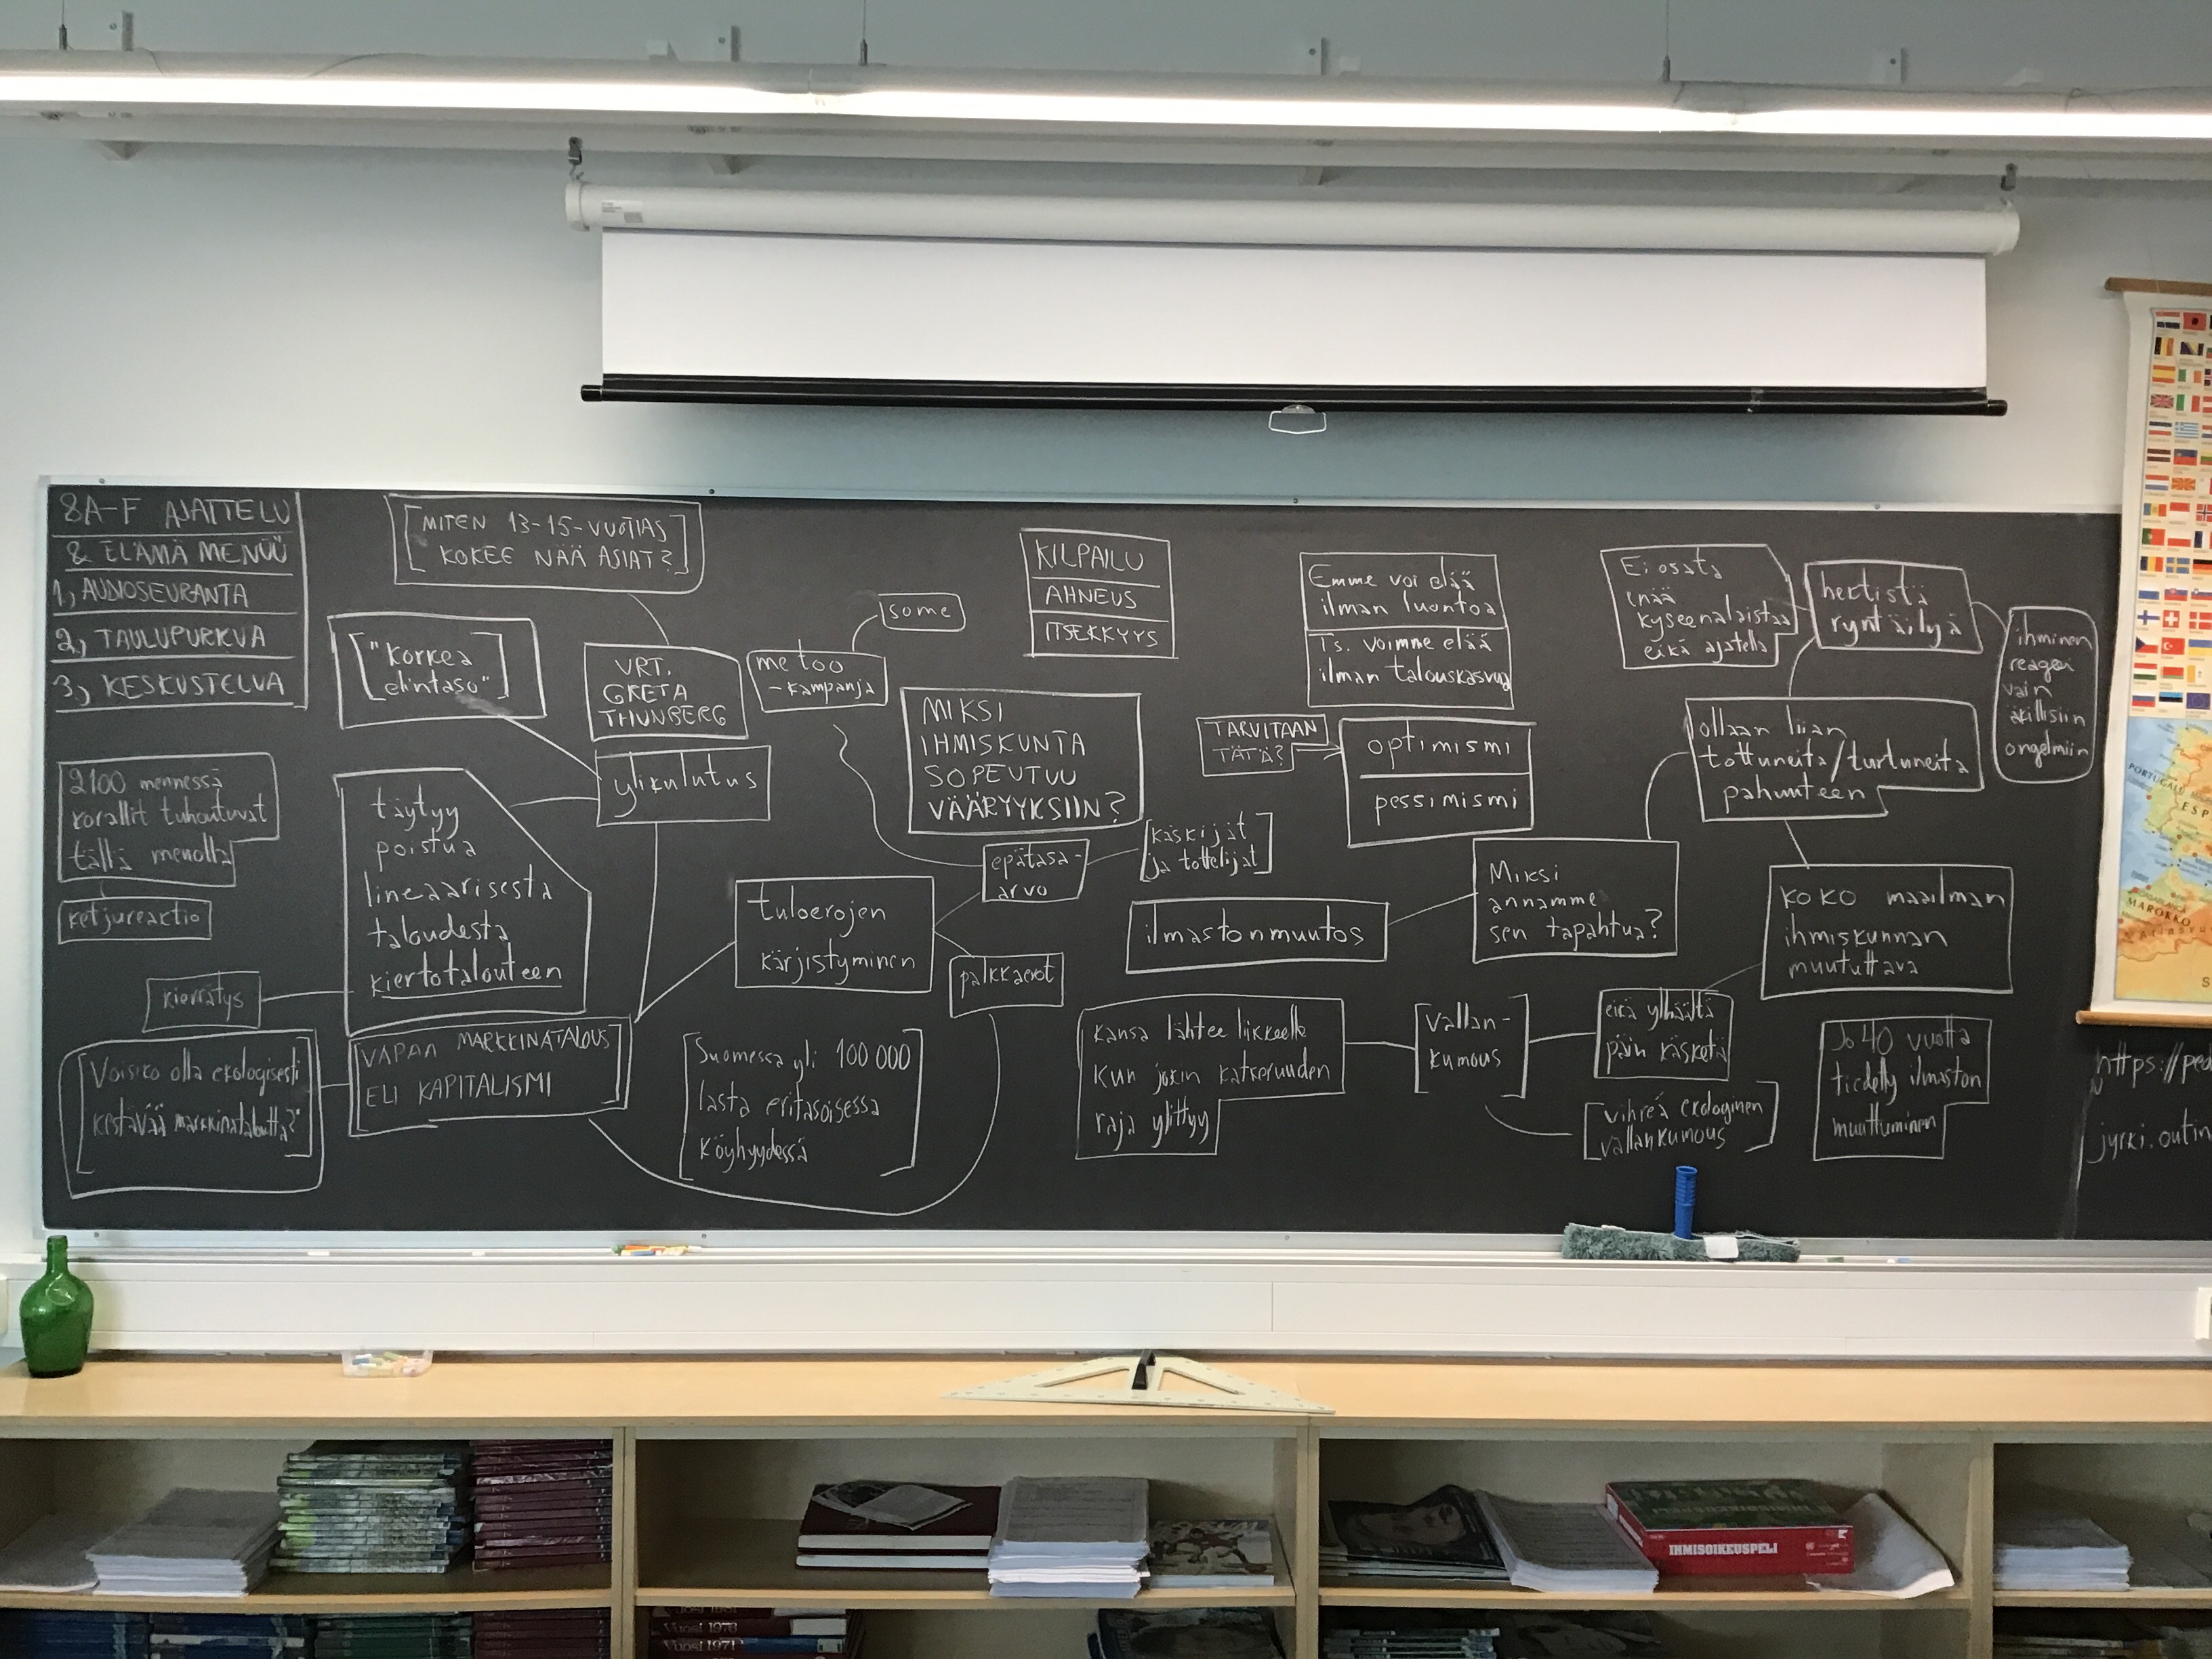 8A-F AJATTELU
& ELÄMÄ MENÜÜ
1, AUDIOSEURANTA
2, TAULUPURKUA
3, KESKUSTELUA
[MITEN 13-15-VUOTIAS
KOKEE NÄÄ ASIAT?]
["korkea
elintaso"]
VRT.
GRETA
THUNBERG
me too
-kampanja
some
ylikulutus
2100 mennessä
korallit tuhoutuvat
tällä menolla
ketjureaktio
täytyy
poistua
lineaarisesta
taloudesta
kiertotalouteen
kierrätys
[Voisiko olla ekologisesti
kestävää markkinataloutta?]
[VAPAA MARKKINATALOUS
ELI KAPITALISMI]
tuloerojen
kärjistyminen
epätasa-
arvo
[käskijät
ja tottelijat]
palkkaerot
[Suomessa yli 100 000
lasta eritasoisessa
köyhyydessä]
KILPAILU
AHNEUS
ITSEKKYYS
MIKSI
IHMISKUNTA
SOPEUTUU
VÄÄRYYKSIIN?
Emme voi elää
ilman luontoa
Ts. voimme elää
ilman talouskasvua
TARVITAAN
TÄTÄ?
optimismi
pessimismi
ilmastonmuutos
Miksi
annamme
sen tapahtua?
kansa lähtee liikkeelle
kun jokin katkeruuden
raja ylittyy
[Vallan-
kumous]
eikä ylhäältä
päin käsketä
[vihreä ekologinen
vallankumous]
Ei osata
enää
kyseenalaistaa
eikä ajatella
hektistä
ryntäilyä
ihminen
reagoi
vain
äkillisiin
ongelmiin
ollaan liian
tottuneita/turtuneita
pahuuteen
koko maailman
ihmiskunnan
muututtava
Jo 40 vuotta
tiedetty ilmaston
muuttuminen
https://ped
jyrki.outin
PORTUGAL
ESP
MAROKKO
IHMISOIKEUSPELI
Vuosi 1976
Vuosi 1971